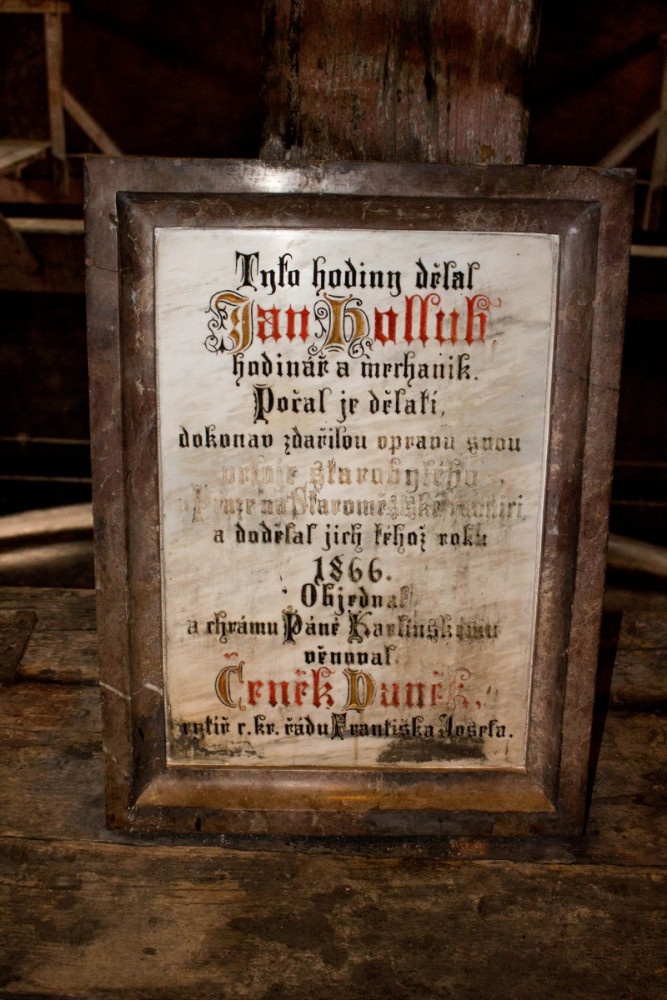 Tyto hodiny dělal
Jan Hollub,
hodinář a mechanik.
Počal je dělati,
dokonav zdařilou opravu svou
orloje starobylého
Praze na Staroměstské radnici
a dodělal jich téhož roku
1866.
Objednal
a chrámu Páně Karlínskému
věnoval
Čeněk Daněk,
rytíř c. kr. řádu Františka Josefa.